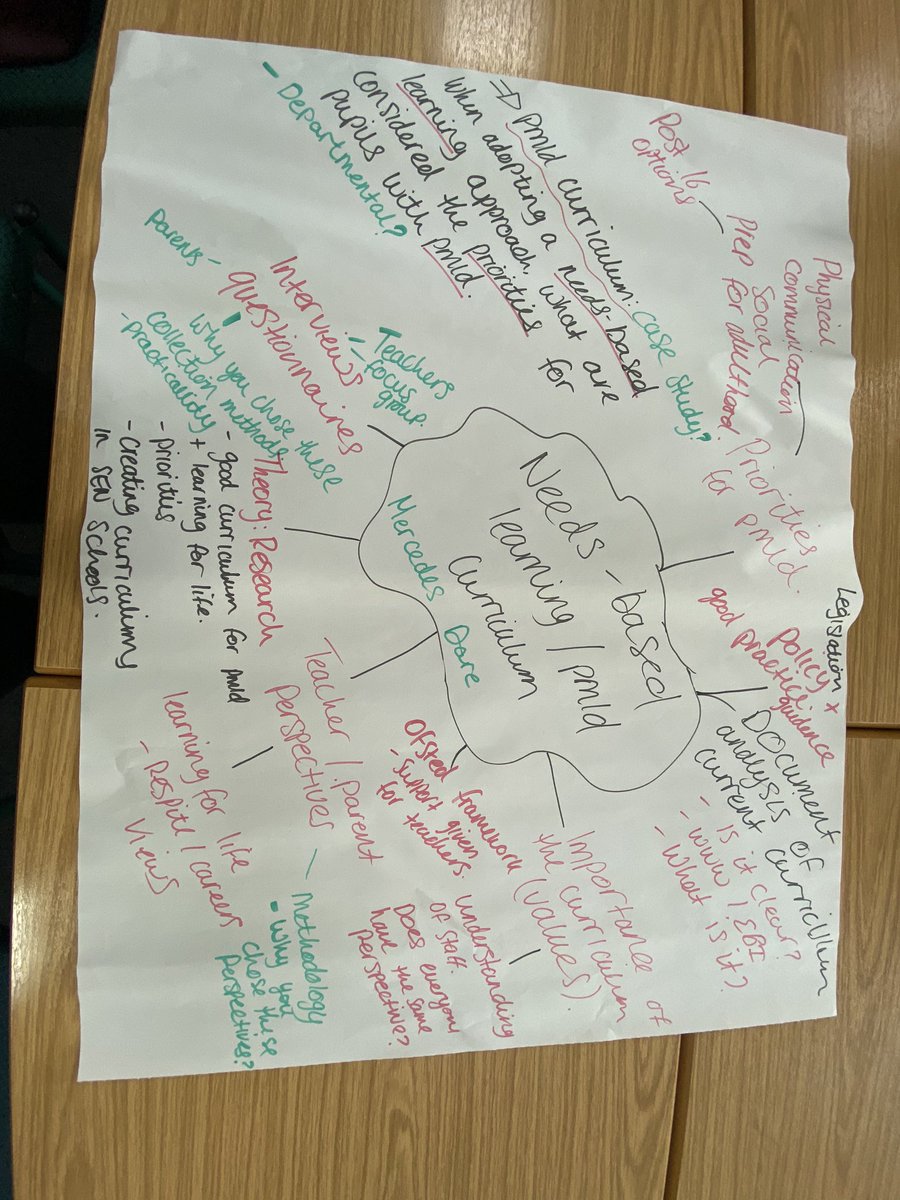 Needs-based
learning / pmld
curriculum
Mercedes Dare
=> pmld curriculum: case study?
When adopting a needs-based
learning approach, what are
considered the priorities for
pupils with pmld.
- Departmental?
Post 16
options
Physical
communication
Social
Prep for adulthood
Priorities
for pmld.
Legislation x
policy
good practice guidance
Document
analysis of
current curriculum
- Is it clear?
- WWW / EBI
- What is it?
Importance of
the curriculum
(values).
understanding
of staff.
Does everyone
have the same
perspective?
Ofsted framework
- support given
for teachers.
Teacher / parent
perspectives
Methodology
- Why you
chose these
perspectives?
learning for life
- Respite / careers
views
Theory: Research
- good curriculum for pmld
+ learning for life.
- priorities
- creating curriculums
in SEN schools.
Interviews
questionnaires
Teachers
- focus
group.
Parents -
- Why you chose these
collection methods
- practicality